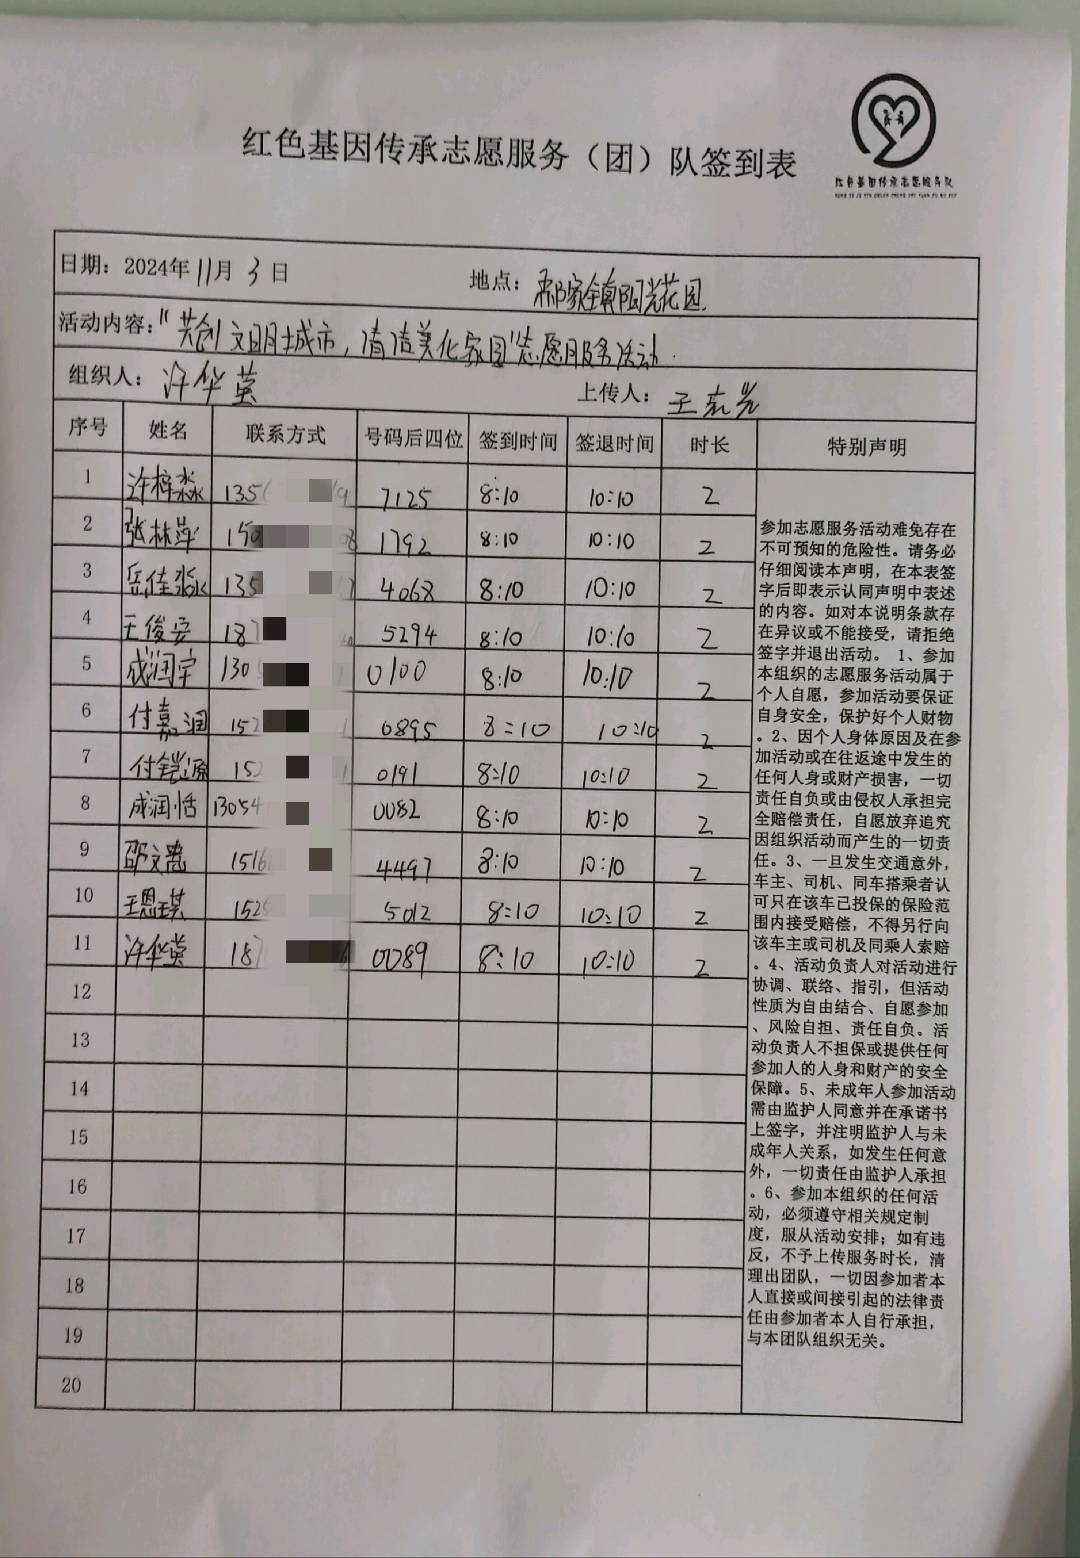 红色基因传承志愿服务（团）队签到表
红色基因传承志愿服务队
日期：2024年11月3日 地点：祁家镇阳光花园
活动内容："共创文明城市，清洁美化家园"志愿服务活动.
组织人：许华英 上传人：王克光
序号 姓名 联系方式 号码后四位 签到时间 签退时间 时长 特别声明
1 许梓淼 135 7125 8:10 10:10 2
2 张林萍 150 1792 8:10 10:10 2
3 岳佳淼 135 4068 8:10 10:10 2
4 王俊安 187 5294 8:10 10:10 2
5 成润宇 130 0100 8:10 10:10 2
6 付嘉润 152 0895 8:10 10:10 2
7 付铠源 152 0191 8:10 10:10 2
8 成润恬 13054 0082 8:10 10:10 2
9 邵文 1516 4497 8:10 10:10 2
10 王恩琪 1525 5012 8:10 10:10 2
11 许华英 187 0089 8:10 10:10 2
12
13
14
15
16
17
18
19
20
参加志愿服务活动难免存在
不可预知的危险性。请务必
仔细阅读本声明，在本表签
字后即表示认同声明中表述
的内容。如对本说明条款存
在异议或不能接受，请拒绝
签字并退出活动。 1、参加
本组织的志愿服务活动属于
个人自愿，参加活动要保证
自身安全，保护好个人财物
。2、因个人身体原因及在参
加活动或在往返途中发生的
任何人身或财产损害，一切
责任自负或由侵权人承担完
全赔偿责任，自愿放弃追究
因组织活动而产生的一切责
任。3、一旦发生交通意外，
车主、司机、同车搭乘者认
可只在该车已投保的保险范
围内接受赔偿，不得另行向
该车主或司机及同乘人索赔
。4、活动负责人对活动进行
协调、联络、指引，但活动
性质为自由结合、自愿参加
、风险自担、责任自负。活
动负责人不担保或提供任何
参加人的人身和财产的安全
保障。5、未成年人参加活动
需由监护人同意并在承诺书
上签字，并注明监护人与未
成年人关系，如发生任何意
外，一切责任由监护人承担
。6、参加本组织的任何活
动，必须遵守相关规定制
度，服从活动安排；如有违
反，不予上传服务时长，清
理出团队，一切因参加者本
人直接或间接引起的法律责
任由参加者本人自行承担，
与本团队组织无关。